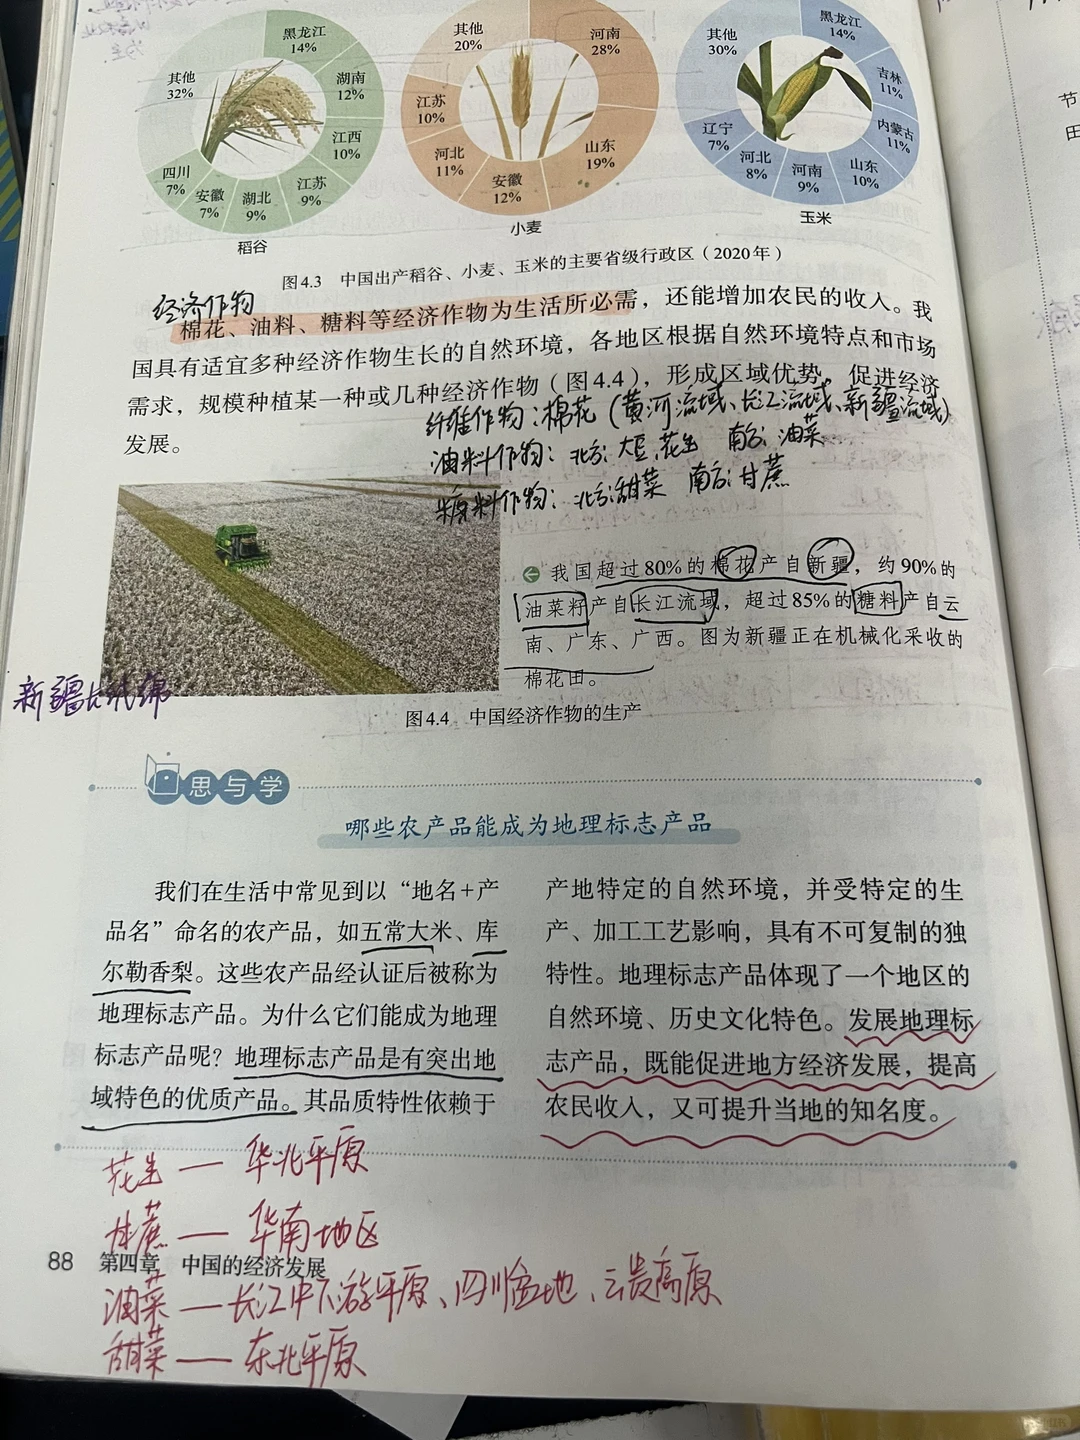 黑龙江
14%
湖南
12%
江西
10%
江苏
9%
湖北
9%
安徽
7%
四川
7%
其他
32%
稻谷
河南
28%
山东
19%
安徽
12%
河北
11%
江苏
10%
其他
20%
小麦
黑龙江
14%
吉林
11%
内蒙古
11%
山东
10%
河南
9%
河北
8%
辽宁
7%
其他
30%
玉米
图4.3 中国出产稻谷、小麦、玉米的主要省级行政区（2020年）
经济作物
棉花、油料、糖料等经济作物为生活所必需，还能增加农民的收入。我
国具有适宜多种经济作物生长的自然环境，各地区根据自然环境特点和市场
需求，规模种植某一种或几种经济作物（图4.4），形成区域优势，促进经济
发展。
纤维作物：棉花（黄河流域、长江流域、新疆流域）
油料作物：北方：大豆、花生 南方：油菜
糖料作物：北方：甜菜 南方：甘蔗
我国超过80%的棉花产自新疆，约90%的
油菜籽产自长江流域，超过85%的糖料产自云
南、广东、广西。图为新疆正在机械化采收的
棉花田。
新疆长绒绵
图4.4 中国经济作物的生产
思与学
哪些农产品能成为地理标志产品
我们在生活中常见到以“地名+产
品名”命名的农产品，如五常大米、库
尔勒香梨。这些农产品经认证后被称为
地理标志产品。为什么它们能成为地理
标志产品呢？地理标志产品是有突出地
域特色的优质产品。其品质特性依赖于
产地特定的自然环境，并受特定的生
产、加工工艺影响，具有不可复制的独
特性。地理标志产品体现了一个地区的
自然环境、历史文化特色。发展地理标
志产品，既能促进地方经济发展，提高
农民收入，又可提升当地的知名度。
花生 — 华北平原
甘蔗 — 华南地区
88 第四章 中国的经济发展
油菜 — 长江中下游平原、四川盆地、云贵高原
甜菜 — 东北平原
节
田